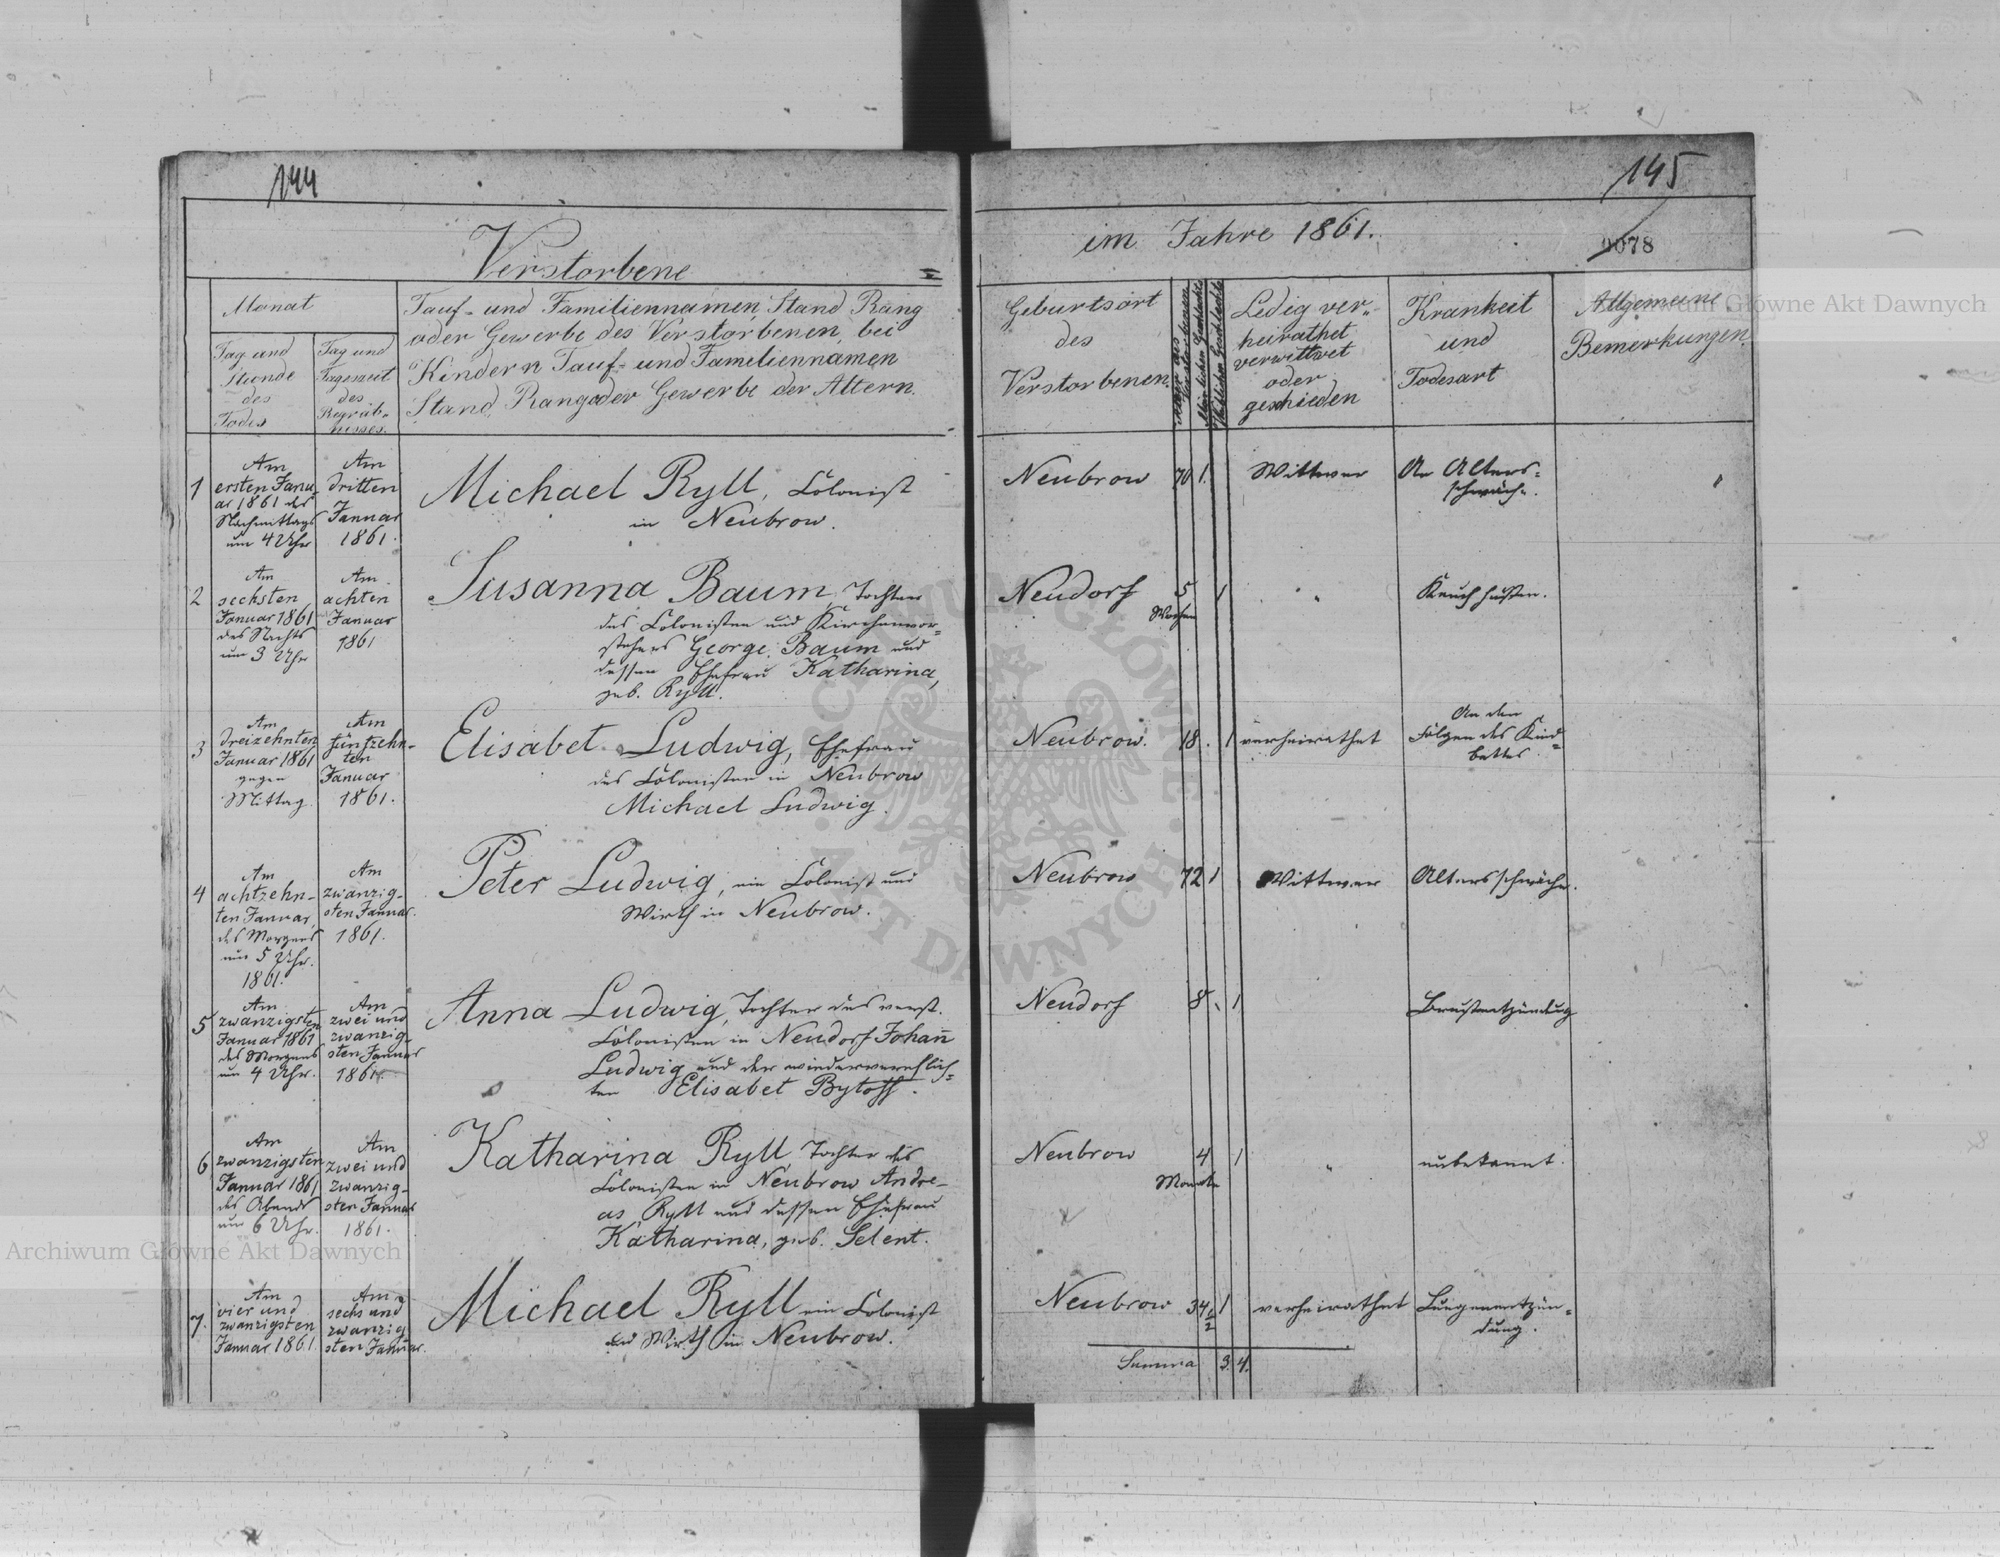 144
Verstorbene
Monat
Tag und
Stunde
des
Todes
Tag und
Tageszeit
des
Begräb-
nisses.
Tauf- und Familiennamen, Stand Rang
oder Gewerbe des Verstorbenen, bei
Kindern Tauf- und Familiennamen
Stand Rang oder Gewerbe der Altern.
1
Am
ersten Janu-
ar 1861 des
Nachmittags
um 4 Uhr
Am
dritten
Januar
1861.
Michael Ryll, Colonist
in Neubrow.
2
Am
sechsten
Januar 1861
des Nachts
um 3 Uhr
Am
achten
Januar
1861
Susanna Baum, Tochter
des Colonisten und Kirchenvor-
stehers George Baum und
dessen Ehefrau Katharina,
geb. Ryll.
3
Am
dreizehnten
Januar 1861
gegen
Mittag.
Am
fünfzehn-
ten
Januar
1861.
Elisabet Ludwig, Ehefrau
des Colonisten in Neubrow
Michael Ludwig.
4
Am
achtzehn-
ten Januar,
des Morgens
um 5 Uhr.
1861.
Am
zwanzig-
sten Januar.
1861.
Peter Ludwig, ein Colonist und
Wirth in Neubrow.
5
Am
zwanzigsten
Januar 1861
des Morgens
um 4 Uhr.
Am
zwei und
zwanzig-
sten Januar
1861.
Anna Ludwig, Tochter des verst.
Colonisten in Neudorf Johan̄
Ludwig und der wiederverehlich-
ten Elisabet Bytoff.
6
Am
zwanzigsten
Januar 1861
des Abends
um 6 Uhr.
Am
zwei und
zwanzig-
sten Januar
1861.
Katharina Ryll Tochter des
Colonisten in Neubrow Andre-
as Ryll und dessen Ehefrau
Katharina, geb. Selent.
7.
Am
vier und
zwanzigsten
Januar 1861.
Am
sechs und
zwanzig
sten Januar.
Michael Ryll ein Colonist
und Wirth in Neubrow.
145
im Jahre 1861.
9078
Geburtsort
des
Verstorbenen.
Alter des
Verstorbenen
Männlichen Geschlechts
Weiblichen Geschlechts
Ledig ver-
heirathet
verwittwet
oder
geschieden
Krankeit
und
Todesart
Allgemeine
Bemerkungen.
Neubrow 70 1. Wittwer An Alters-
schwäche.
Neudorf 5 1 " Keuchhusten.
Wochen
Neubrow. 18. 1 verheirathet An den
Folgen des Kind-
bettes.
Neubrow 72 1 Wittwer Altersschwäche.
Neudorf 8 1 Brustentzündung
Neubrow 4 1 " unbekannt.
Monate
Neubrow 34 1/2 1 verheirathet Lungenentzün-
dung.
Summa 3. 4.
Archiwum Główne Akt Dawnych
Archiwum Główne Akt Dawnych
ARCHIWUM GŁÓWNE
AKT DAWNYCH